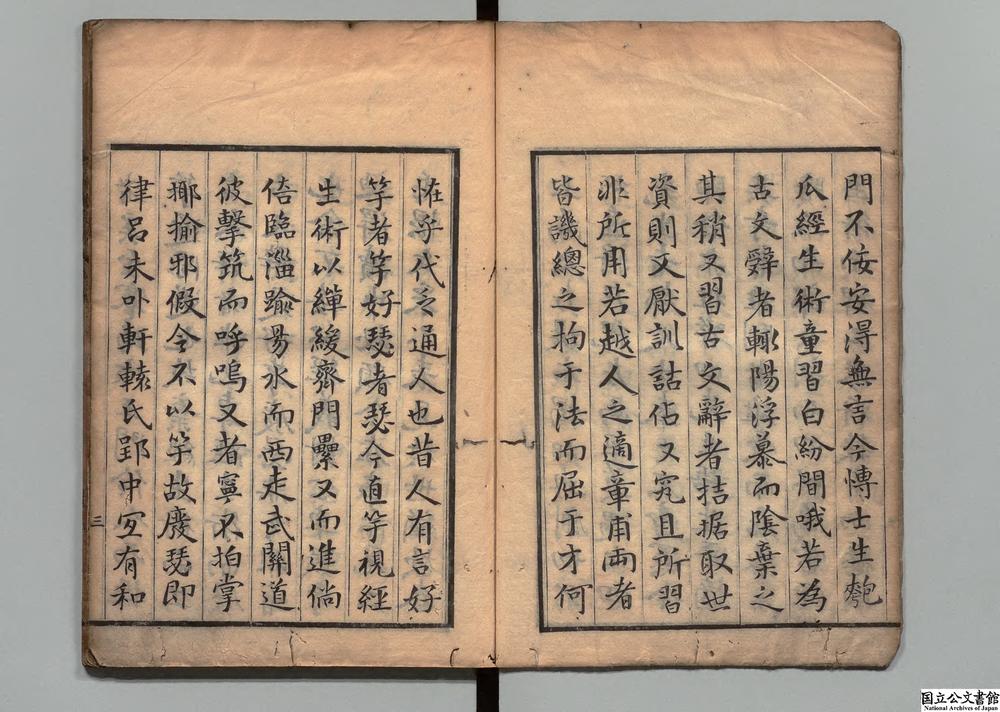 門不佞安淂無言今博士生匏
瓜經生術童習白紛間哦若為
古文辭者輙陽浮慕而陰棄之
其稍又習古文辭者拮据取世
資則又厭訓詁佔又究且所習
非所用若越人之適章甫兩者
皆譏總之拘于法而屈于才何
恠乎代乏通人也昔人有言好
竽者竽好瑟者瑟今直竽視經
生術以繟緩齊門纍又而進倘
倍臨淄踰昜水而西走武關道
彼擊筑而呼嗚又者寧不拍掌
揶揄邪假令不以竽故廢瑟即
律呂未卟軒轅氏郢中宐有和
三
国立公文書館
National Archives of Japan